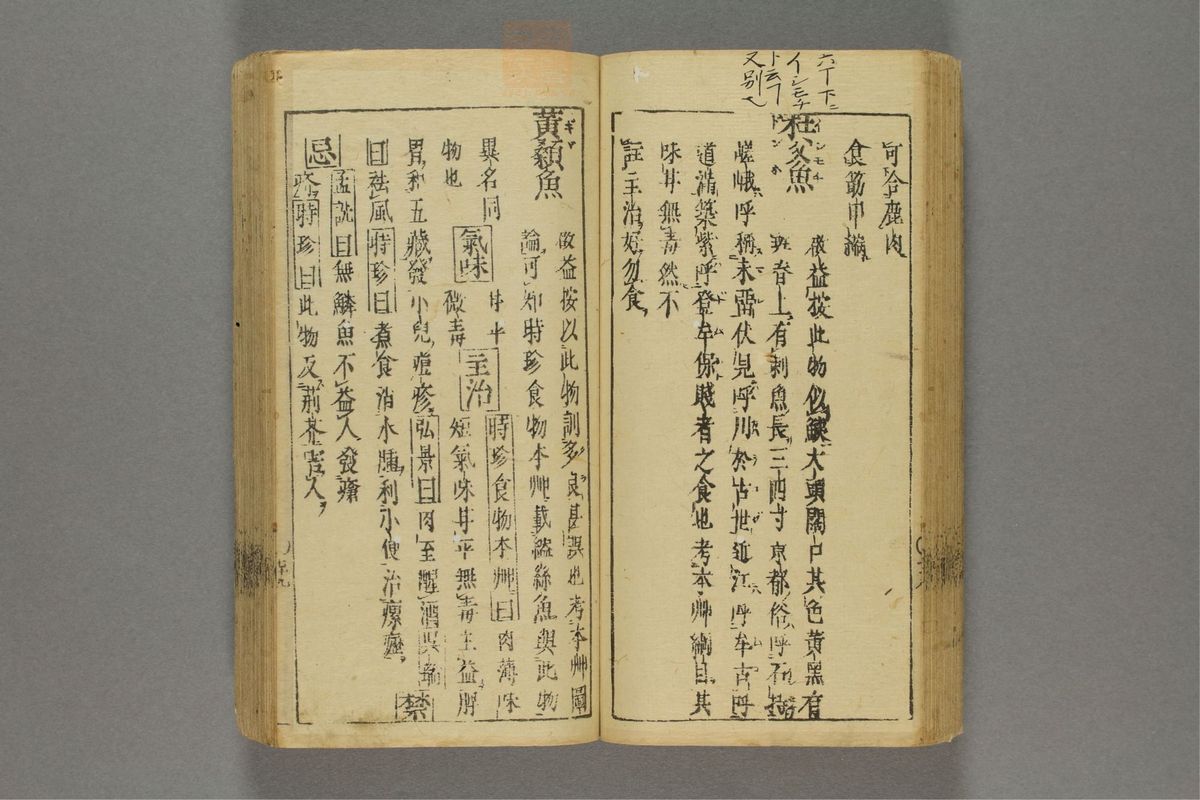 六丁下ニ
イシモチ
ト云丁
又別也
可合鹿肉
食筋巾縮
杜父魚
イシモチ
徴益按此物似鰊大頭闊口其色黄黒有
斑脊上有刺魚長三四寸京都俗呼石持
嵯峨呼稱未雷伏見呼川於古世近江呼牟古
道滿築紫呼登牟保賤者之食也考本艸綱目其
味甘無毒然不
註主治姙勿食
黄顙魚
ギヾ
徴益按以此物訓多良甚誤也考本艸圖
論可知時珍食物本艸載鰛絲魚與此物
異名同
物也
氣味
甘平
微毒
主治
時珍食物本艸曰肉薄味
短氣味甘平無毒主益脾
胃和五藏發小兒痘疹弘景曰肉至醒酒吴瑞
曰祛風時珍曰煮食消水腫利小便治瘰癧
禁
孟詵曰無鱗魚不益人發瘡
忌
疥時珍曰此物反荊芥害人